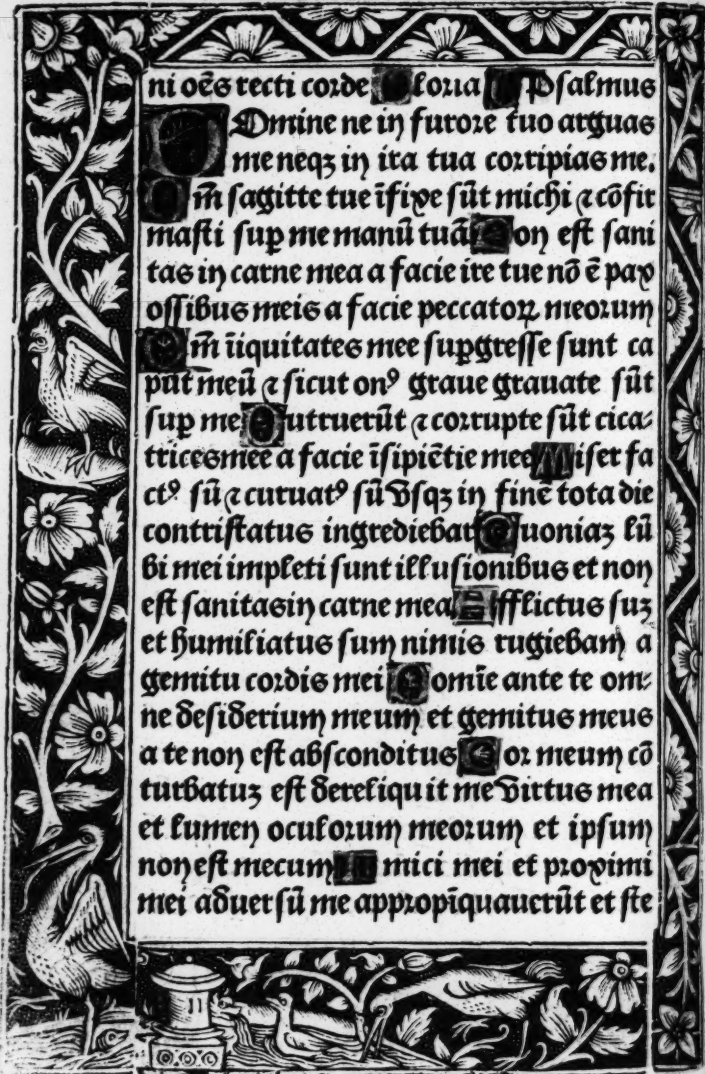 ni oēs recti corde Gloria Psalmus
Domine ne in furore tuo arguas
me neqꝫ in ira tua corripias me.
Qm̄ sagitte tue īfixe sūt michi ⁊ cōfir
masti suꝑ me manū tuā Non est sani
tas in carne mea a facie ire tue nō ē pax
ossibus meis a facie peccatoꝝ meorum
Qm̄ īiquitates mee suꝑgresse sunt ca
put meū ⁊ sicut onꝰ graue grauate sūt
suꝑ me Putruerūt ⁊ corrupte sūt cica⸗
trices mee a facie īsipiētie mee Miser fa
ctꝰ sū ⁊ curuatꝰ sū vsqꝫ in finē tota die
contristatus ingrediebar Quoniaꝫ lū
bi mei impleti sunt illusionibus et non
est sanitas in carne mea Afflictus suꝫ
et humiliatus sum nimis rugiebam a
gemitu cordis mei Domīe ante te om⸗
ne desiderium meum et gemitus meus
a te non est absconditus Cor meum cō
turbatuꝫ est dereliquit me virtus mea
et lumen oculorum meorum et ipsum
non est mecum Amici mei et proximi
mei aduersū me appropīquauerūt et ste